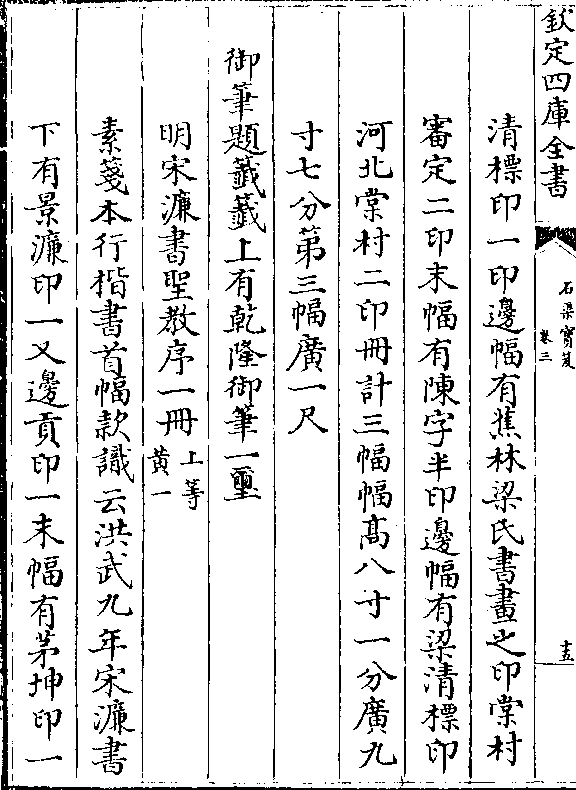 欽定四庫全書
石渠寶笈
卷三
十五
清標印一印邊幅有蕉林梁氏書畫之印棠村
審定二印末幅有陳字半印邊幅有梁清標印
河北棠村二印冊計三幅幅高八寸一分廣九
寸七分第三幅廣一尺
御筆題籤籤上有乾隆御筆一璽
明宋濂書聖教序一冊上等
黃一
素箋本行楷書首幅款識云洪武九年宋濂書
下有景濂印一又邊貢印一末幅有茅坤印一